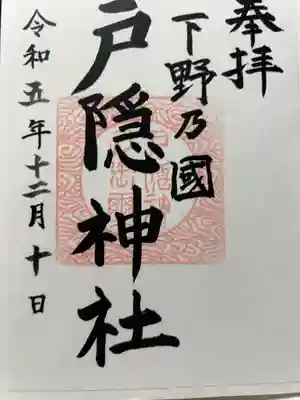 奉拝
下野乃國
戸隠神社
令和五年十二月十日